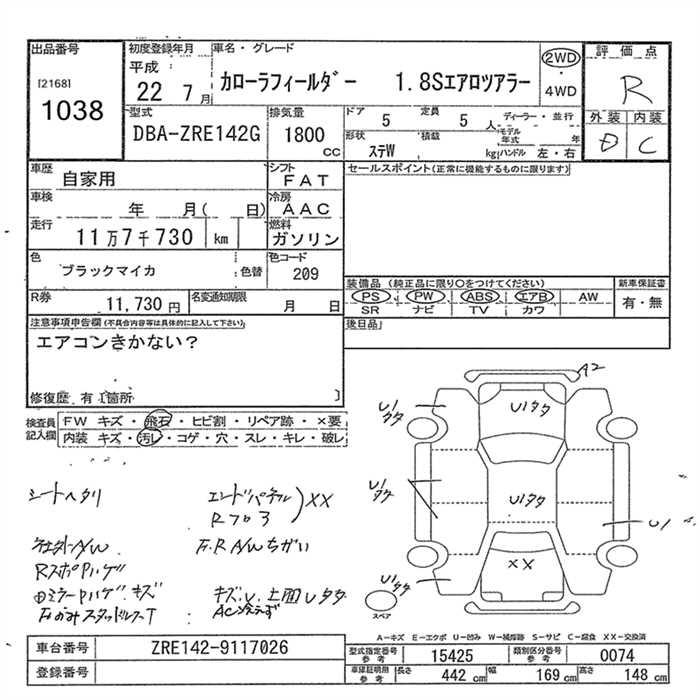 出品番号
[2168]
1038
初度登録年月
平成
22 7月
車名・グレード
カローラフィールダー 1.8Sエアロツアラー
2WD
・
4WD
評価点
R
外装 内装
D C
型式
DBA-ZRE142G
排気量
1800
cc
ドア 5
定員 5 人
ディーラー・並行
形状 ステW
積載 kg
モデル年式 年
ハンドル 左・右
車歴 自家用
シフト FAT
車検 年 月( 日)
冷房 AAC
走行 11万7千730 km
燃料 ガソリン
色 ブラックマイカ
色替
色コード 209
R券 11,730円
名変通知期限 月 日
セールスポイント(正常に機能するものに限ります)
装備品(純正品に限り○をつけてください)
PS PW ABS エアB AW
SR ナビ TV カワ
新車保証書
有・無
後日品
注意事項申告欄(不具合内容等は具体的に記入して下さい)
エアコンきかない?
修復歴 有[箇所 ]
検査員
記入欄
FW キズ・飛石・ヒビ割・リペア跡・×要
内装 キズ・汚レ・コゲ・穴・スレ・キレ・破レ
シートヘタリ
エンドパネル
Rフロア
XX
社外A/W
F.R A/Wちがい
RスポPハゲ
ミラーPハゲ キズ
スタッドレスT
キズ、凹
AC冷えず
A2
U1タタ
U1タタ
U1タタ
U1タタ
U1
XX
U1タタ
スペア
A−キズ E−エクボ U−凹み W−補修跡 S−サビ C−腐食 XX−交換済
車台番号 ZRE142-9117026
登録番号
型式指定番号 参考 15425
類別区分番号 参考 0074
車庫証明用 参考 長さ 442 cm 幅 169 cm 高さ 148 cm